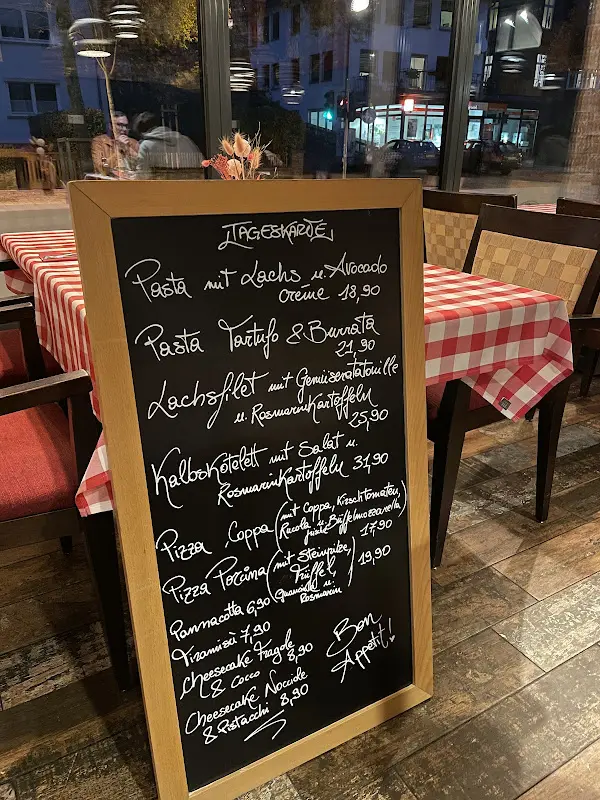 TAGESKARTE
Pasta mit Lachs u. Avocado
creme 18,90
Pasta Tartufo & Burrata
21,90
Lachsfilet mit Gemüseratatouille
u. Rosmarinkartoffeln
25,90
Kalbskotelett mit Salat u.
Rosmarinkartoffeln 31,90
Pizza Coppa (mit Coppa, Kirschtomaten,
Rucola u. Büffelmozzarella)
17,90
Pizza Porcina (mit Steinpilze,
Trüffel, 19,90
u.
Rosmarin)
Pannacotta 6,90
Tiramisù 7,90
Cheesecake Fragole
& Cocco 8,90
Cheesecake Nocciole
& Pistacchi 8,90
Bon
Appetit!